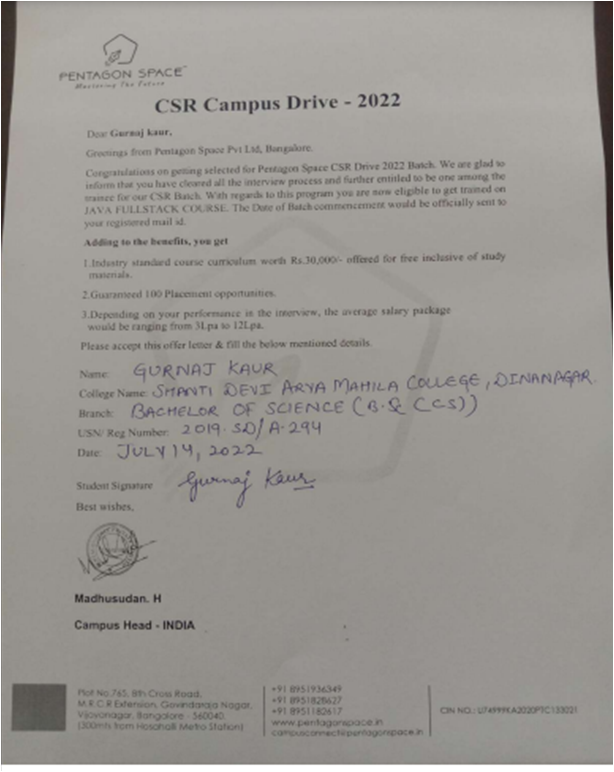 PENTAGON SPACE
Mastering The Future
CSR Campus Drive - 2022
Dear Gurnaj kaur,
Greetings from Pentagon Space Pvt Ltd, Bangalore.
Congratulations on getting selected for Pentagon Space CSR Drive 2022 Batch. We are glad to
inform that you have cleared all the interview process and further entitled to be one among the
trainee for our CSR Batch. With regards to this program you are now eligible to get trained on
JAVA FULLSTACK COURSE. The Date of Batch commencement would be officially sent to
your registered mail id.
Adding to the benefits, you get
1.Industry standard course curriculum worth Rs.30,000/- offered for free inclusive of study
materials.
2.Guaranteed 100 Placement opportunities.
3.Depending on your performance in the interview, the average salary package
would be ranging from 3Lpa to 12Lpa.
Please accept this offer letter & fill the below mentioned details.
Name: GURNAJ KAUR
College Name: SHANTI DEVI ARYA MAHILA COLLEGE, DINANAGAR.
Branch: BACHELOR OF SCIENCE (B.Sc (CS))
USN/ Reg Number: 2019.SD/A-294
Date: JULY 14, 2022
Student Signature Gurnaj Kaur
Best wishes,
Madhusudan. H
Campus Head - INDIA
Plot No.765, 8th Cross Road,
M.R.C.R Extension, Govindaraja Nagar,
Vijayanagar, Bangalore - 560040.
(300mts from Hosahalli Metro Station)
+91 8951936349
+91 8951828627
+91 8951182617
www.pentagonspace.in
campusconnect@pentagonspace.in
CIN NO.: U74999KA2020PTC133021